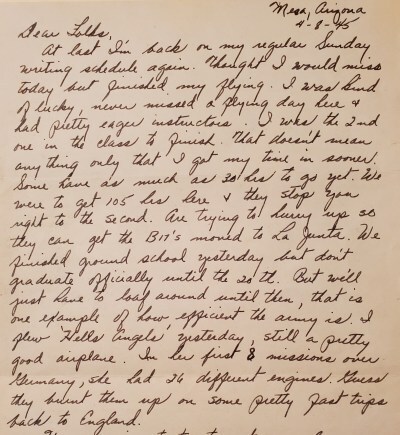 Mesa, Arizona
4-8-45
Dear Folks,
At last I'm back on my regular Sunday
writing schedule again. Thought I would miss
today but finished my flying. I was kind
of lucky, never missed a flying day here &
had pretty eager instructors. I was the 2nd
one in the class to finish. That doesn't mean
anything only that I got my time in sooner.
Some have as much as 30 hrs to go yet. We
were to get 105 hrs here & they stop you
right to the second. Are trying to hurry up so
they can get the B17's moved to La Junta. We
finished ground school yesterday but don't
graduate officially until the 20th. But will
just have to loaf around until then, that is
one example of how efficient the army is. I
flew 'Hells Angels' yesterday, still a pretty
good airplane. In her first 8 missions over
Germany, she had 26 different engines. Guess
they burnt them up on some pretty fast trips
back to England.